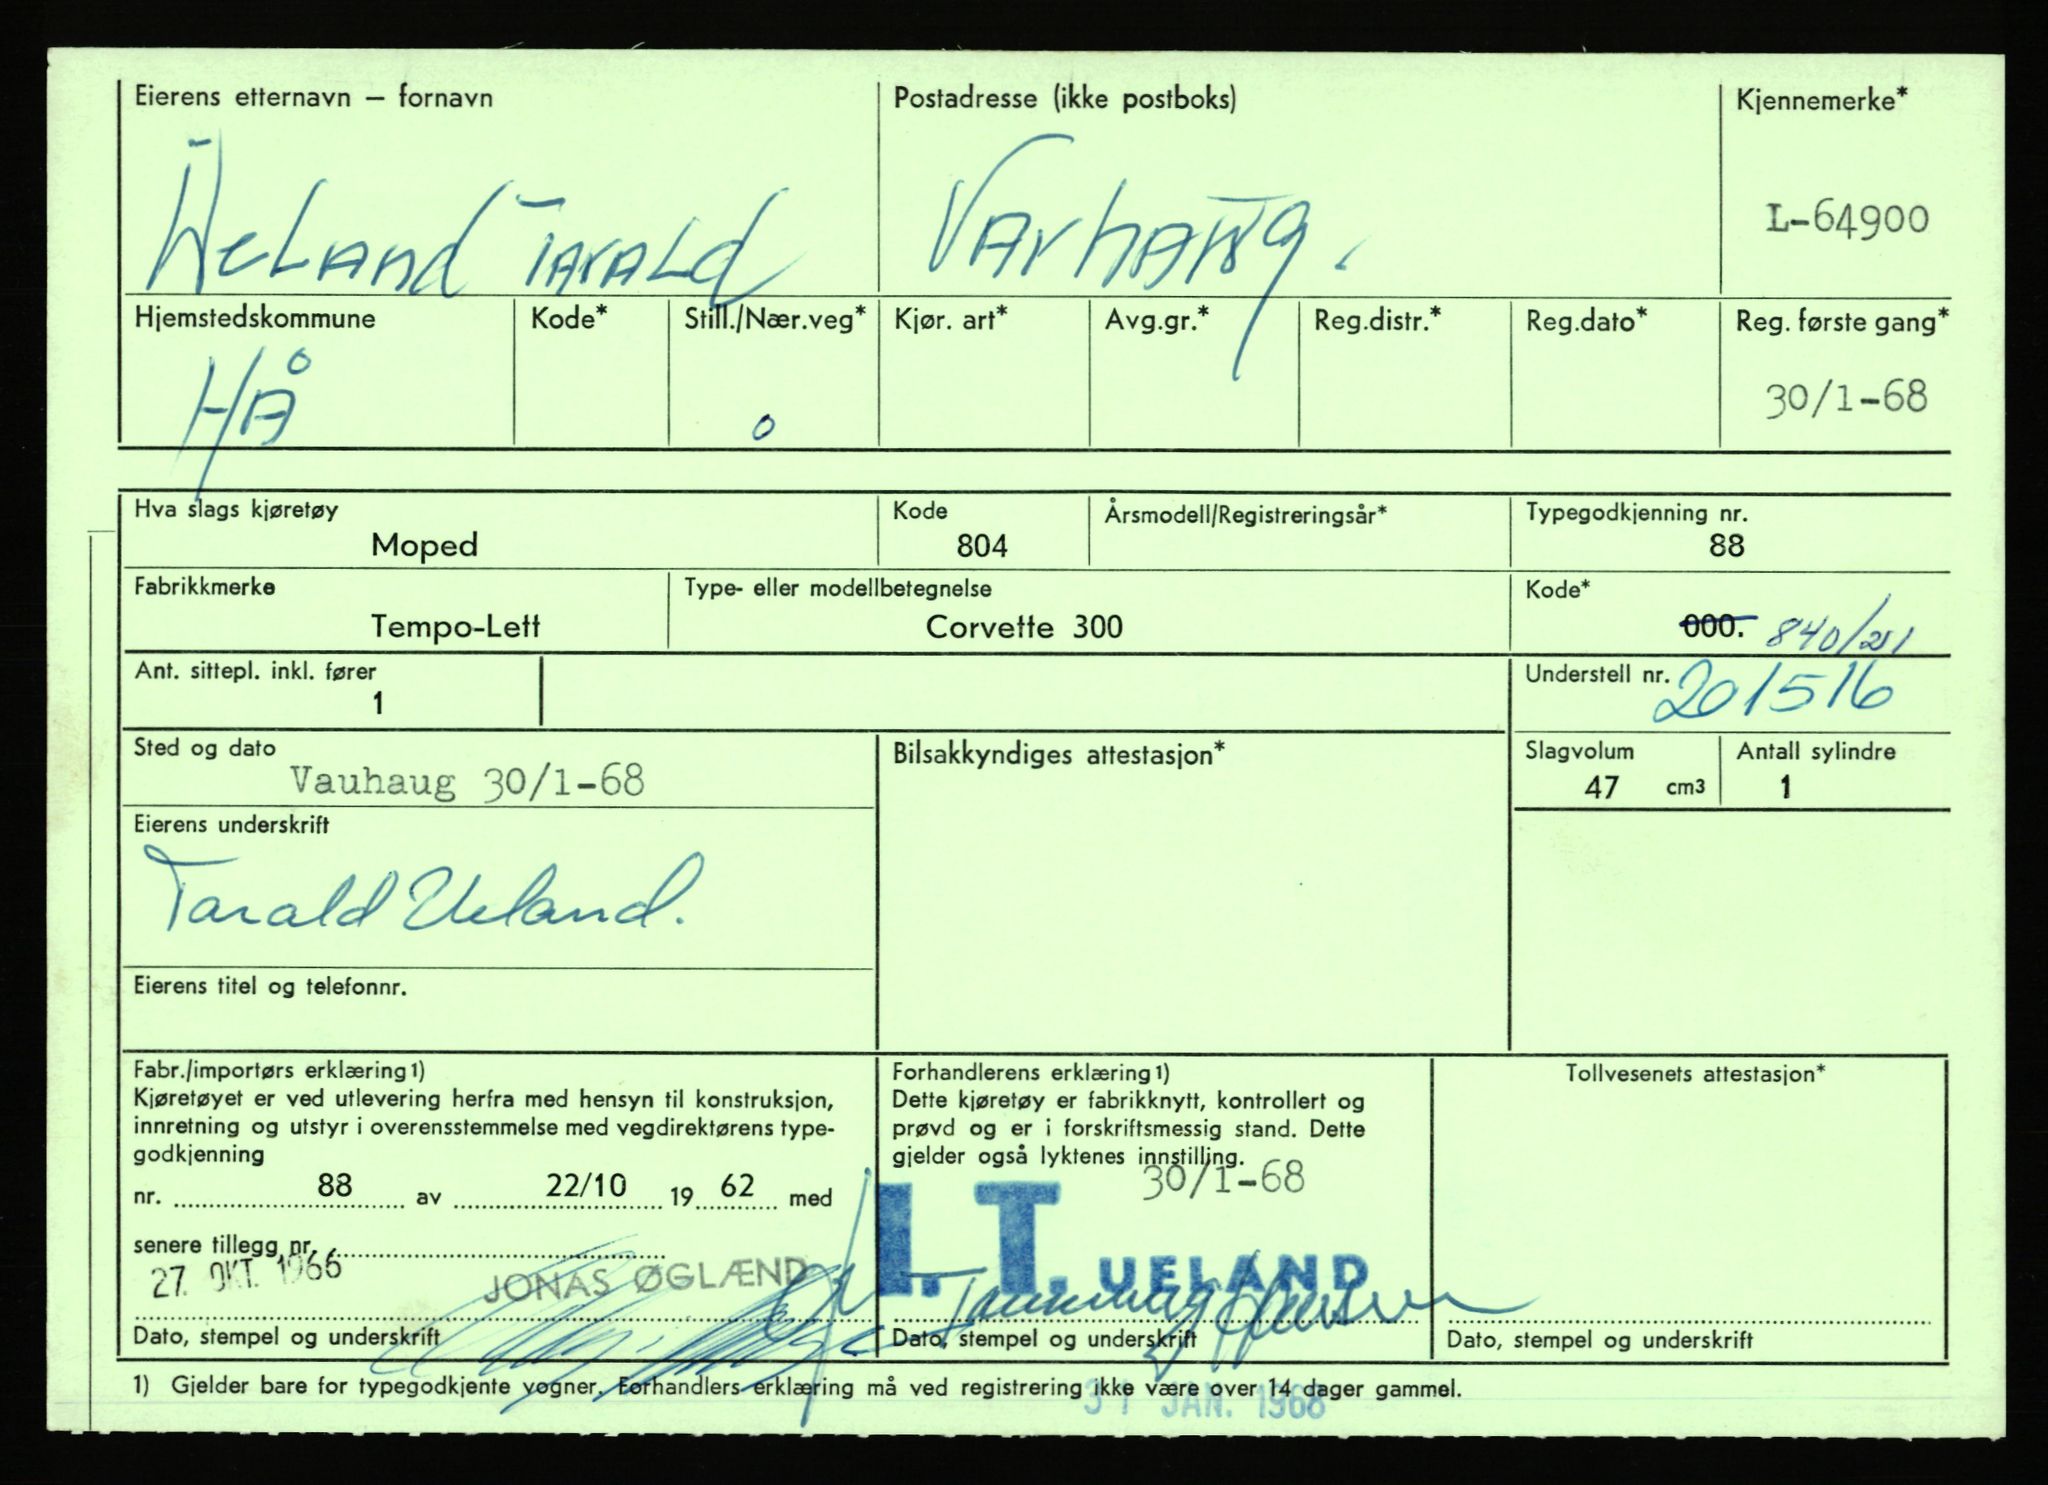 Eierens etternavn – fornavn
Postadresse (ikke postboks)
Kjennemerke*
Ueland Tarald
Varhaug.
L-64900
Hjemstedskommune
Kode*
Still./Nær.veg*
Kjør. art*
Avg.gr.*
Reg.distr.*
Reg.dato*
Reg. første gang*
HÅ
0
30/1-68
Hva slags kjøretøy
Kode
Årsmodell/Registreringsår*
Typegodkjenning nr.
Moped
804
88
Fabrikkmerke
Type- eller modellbetegnelse
Kode*
Tempo-Lett
Corvette 300
000. 840/251
Ant. sittepl. inkl. fører
1
Understell nr.
201516
Sted og dato
Vauhaug 30/1-68
Bilsakkyndiges attestasjon*
Slagvolum
47 cm3
Antall sylindre
1
Eierens underskrift
Tarald Ueland.
Eierens titel og telefonnr.
Fabr./importørs erklæring1)
Kjøretøyet er ved utlevering herfra med hensyn til konstruksjon,
innretning og utstyr i overensstemmelse med vegdirektørens type-
godkjenning
nr. 88 av 22/10 19 62 med
senere tillegg nr.
27. OKT. 1966 JONAS ØGLÆND
Dato, stempel og underskrift
Forhandlerens erklæring1)
Dette kjøretøy er fabrikknytt, kontrollert og
prøvd og er i forskriftsmessig stand. Dette
gjelder også lyktenes innstilling.
30/1-68
I. T. UELAND
Dato, stempel og underskrift
Tollvesenets attestasjon*
Dato, stempel og underskrift
1) Gjelder bare for typegodkjente vogner. Forhandlers erklæring må ved registrering ikke være over 14 dager gammel.
31 JAN. 1968